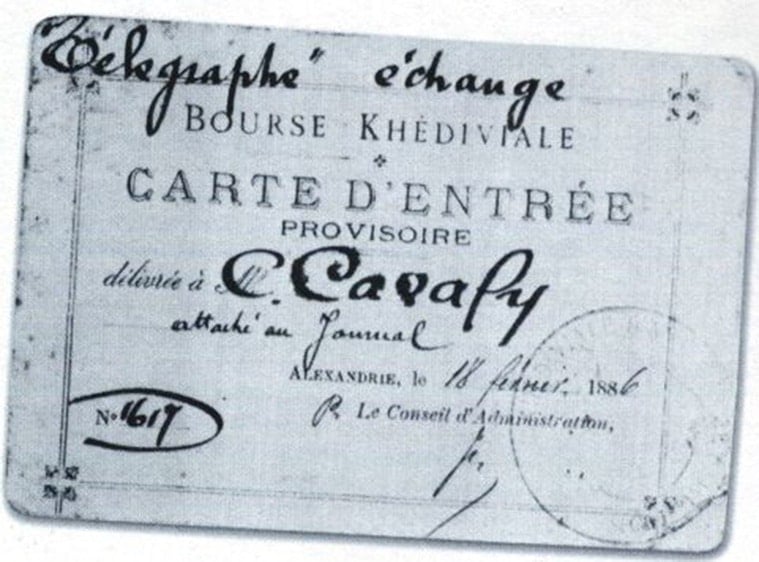 Télégraphe" échange
BOURSE KHÉDIVIALE
CARTE D'ENTRÉE
PROVISOIRE
délivrée à Mr C. Cavafy
attaché au Journal
ALEXANDRIE, le 18 février 1886
Nº 1617
P. Le Conseil d'Administration,